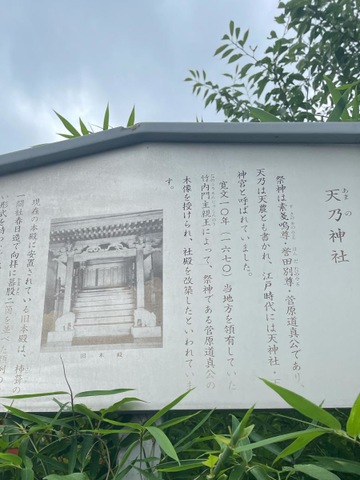 天乃神社
あまの
祭神は素戔嗚尊・誉田別尊・菅原道真公であり、
天乃は天農とも書かれ、江戸時代には天神社、
神宮と呼ばれていました。
寛文一〇年（一六七〇）当地方を領有していた
竹内門主親王によって、祭神である菅原道真公の
木像を授けられ、社殿を改築したといわれていま
す。
旧本殿
現在の本殿に安置されている旧本殿は、
一間社春日造で向拝に蟇股二箇